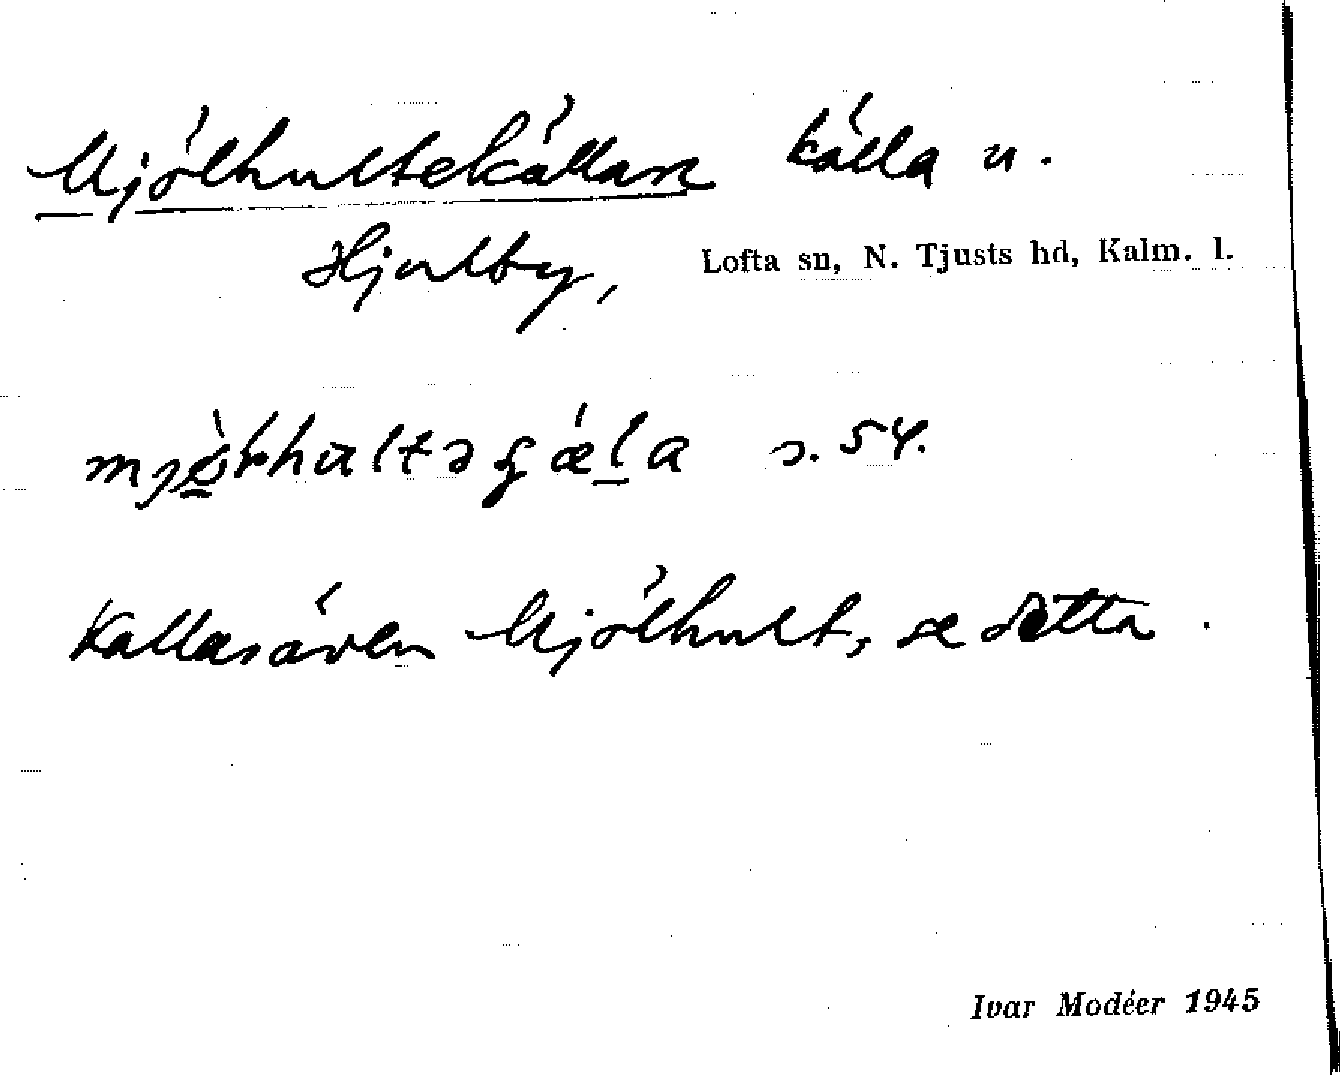 Mjölhultekällan källa u.
Hjulby, Lofta sn, N. Tjusts hd, Kalm. l.
s. 54.
Kallas även Mjölhult, se detta.
Ivar Modéer 1945